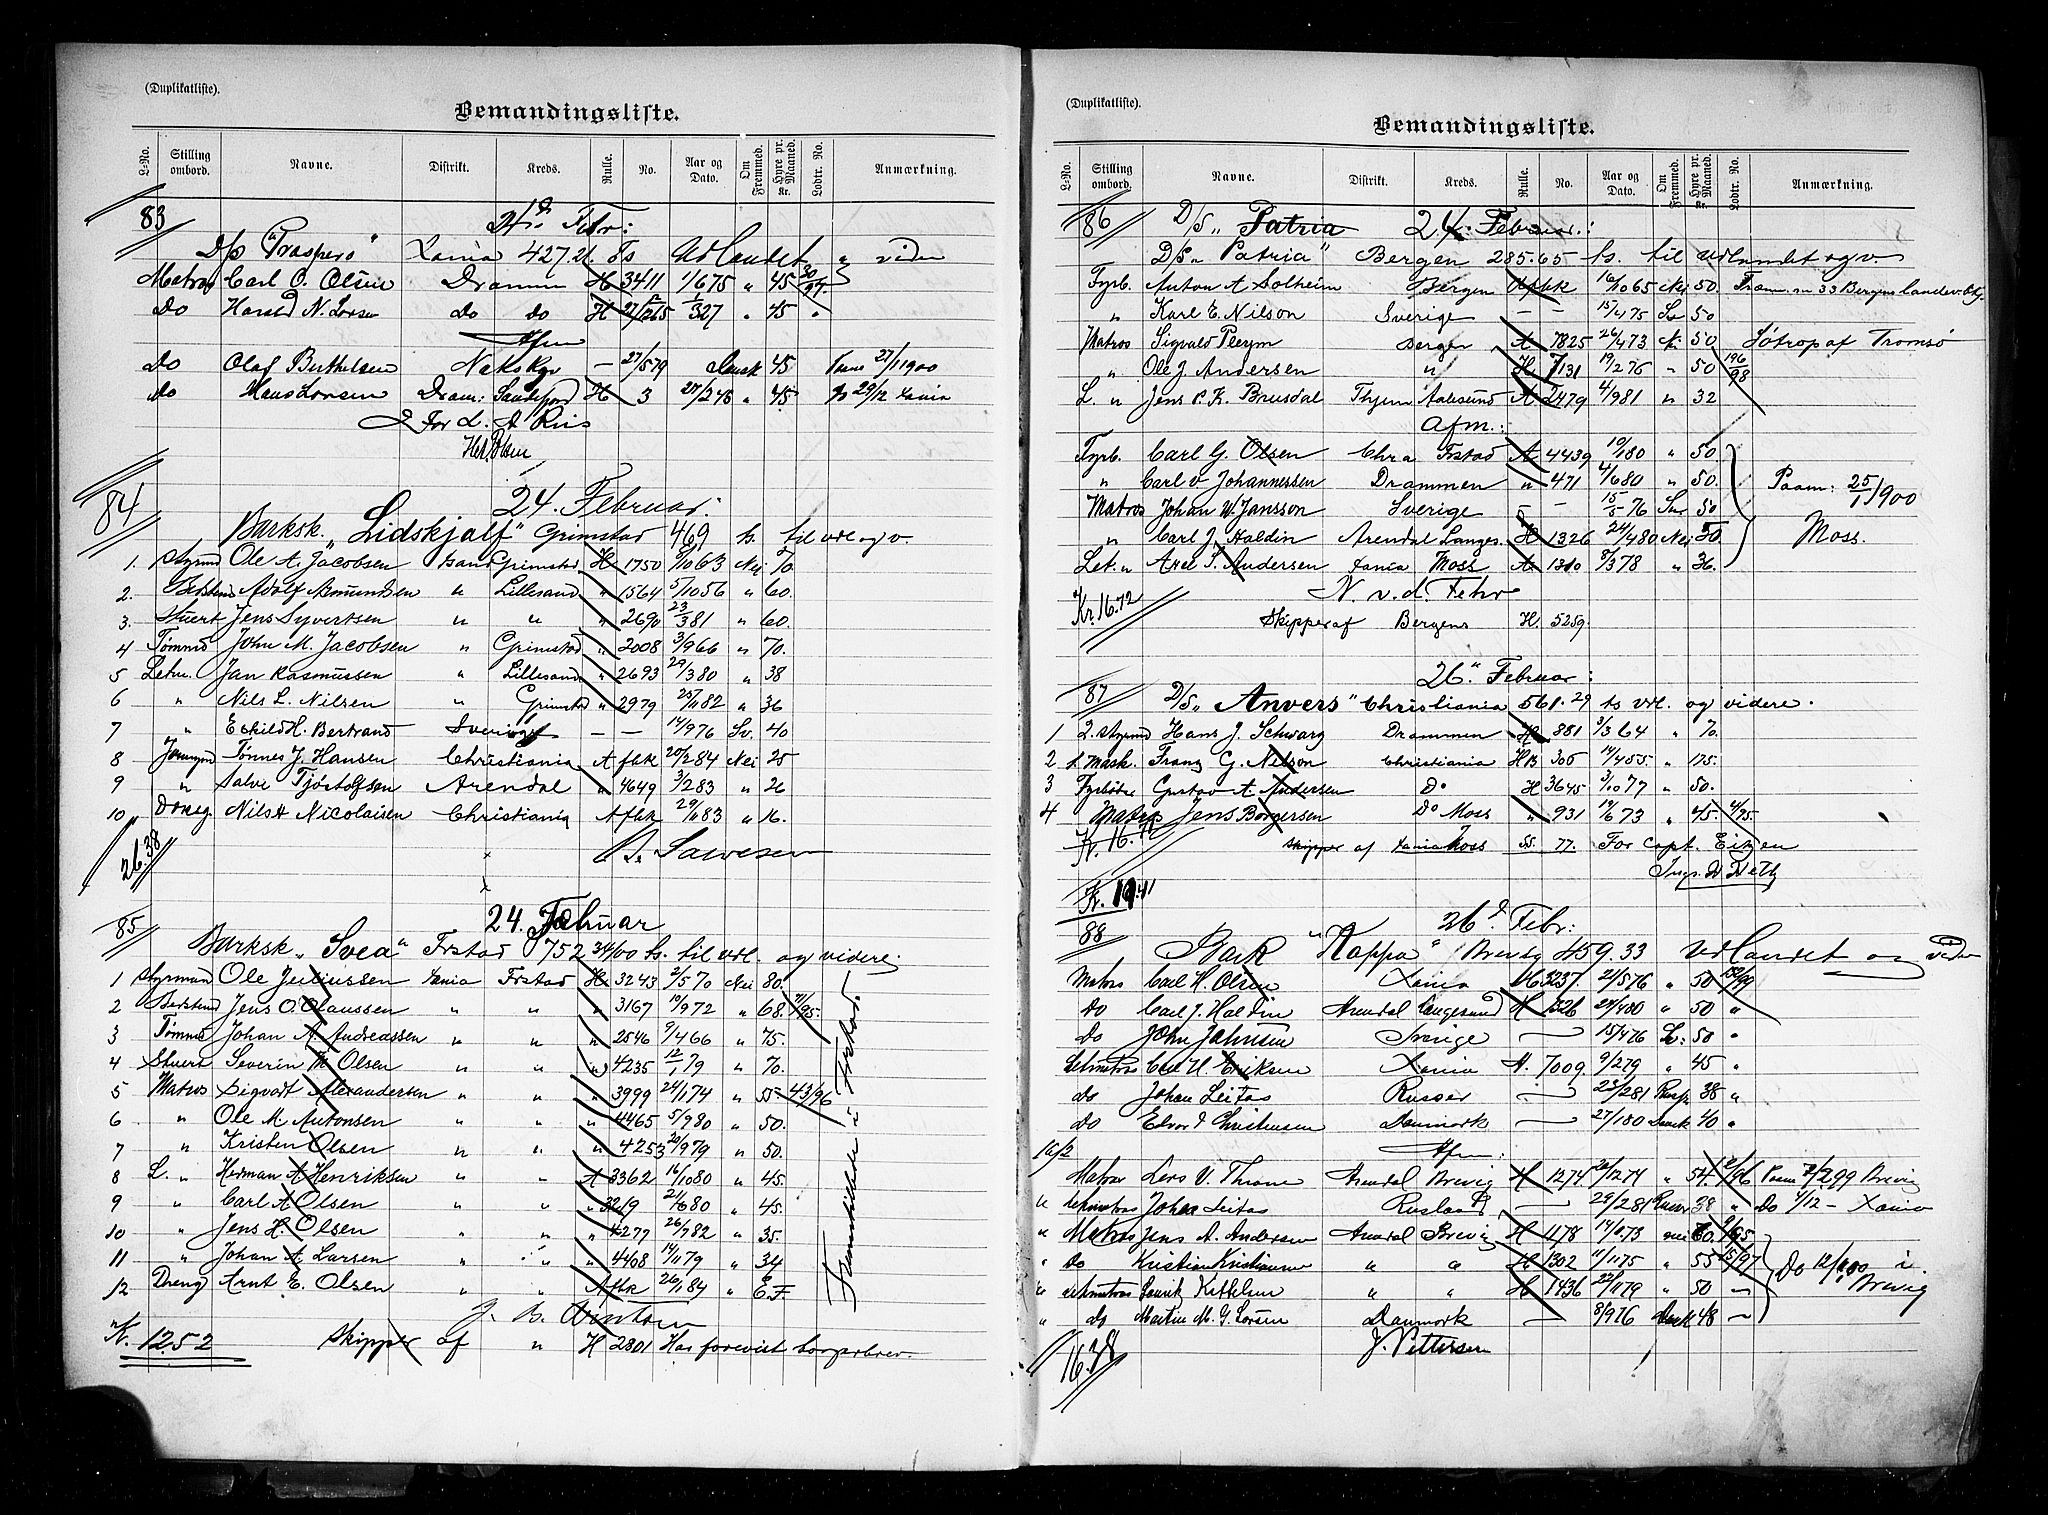 (Duplikatliste).
Bemandingsliste.
L-No. Stilling ombord. Navne. Distrikt. Kreds. Rulle. No. Aar og Dato. Om Fremmed. Hyre pr. Maaned. Kr. Lodtr. No. Anmærkning.
83 24de Febr:
D/S "Prospero" Xania 427.21 Ts Udlandet " vider
Matros Carl O. Olsen Dramm H 3411 1/675 " 45 30/97
Do Harald N. Larsen do do H 45 "
Afm
Do Olaf Berthelsen Nakskov — 27/579 Dansk 45 27/1 1900
Do Hans Larsen Dram: Sandefjord H 3 27/248 " 45 Do 29/12 Xania
For L. A Riis
84 24. Februar:
Barksk. "Lidskjalf" Grimstad 469 ts. til udl og v.
1. Styrmd Ole A. Jacobsen Grimstad H 1750 Nei 70
2. Adolf Asmundsen " Lillesand " 1564 5/1056 " 60.
3. Stuert Jens Syvertsen " " " 2690 23/381 " 60.
4 Tømmd John M. Jacobsen " Grimstad " 2008 3/966 " 70.
5 Letm. Jan Rasmussen " Lillesand " 2693 29/380 " 38
6 " Nils L. Nilsen Grimstad " 2979 25/1182 " 36
7 " Eskild H. Bertrand Sverige — — 14/976 Sv. 40
8 Jungmd Tønnes J. Hansen Christiania A flk 20/284 Nei 25
9 " Salve Tjøstolfsen Arendal " 4649 3/283 " 26
10 Dreng Nils H Nicolaisen Christiania Aflk 29/1183 " 16.
26.38
85 24. Februar
Barksk "Svea" Frstad 752 34/100 ts. til udl. og videre.
1 Styrmand Ole Juliussen Xania Frstad H 3243 2/570 Nei 80.
2 Bestmd Jens O. Olaussen " " " 3167 19/972 " 68. 71/95.
3 Tømmd Johan A. Andreassen " " " 2546 9/466 " 75.
4 Stuert Severin M Olsen " " " 4235 12/1 79 " 70.
5 Matros Sigvart Alexandersen " " " 3999 24/1174 " 55 43/96
6. " Ole M Antonsen " " " 4465 5/980 " 50.
7 " Kristen Olsen " " " 4253 20/979 " 50.
8 L. " Herman A Henriksen " " A 3362 16/1080 " 45.
9 " Carl A Olsen " " " 3219 21/680 " 45.
10 " Jens H. Olsen " " " 4279 26/782 " 35.
11 " Johan A. Larsen " " " 4408 14/1179 " 34
12 Dreng Arnt E. Olsen " " Aflk 26/184 " E.F.
Kr. 12.52 Skipper af " H 2801 Har forevist borgerbrev.
Fremstillede i Frstad
(Duplikatliste).
Bemandingsliste.
L-No. Stilling ombord. Navne. Distrikt. Kreds. Rulle. No. Aar og Dato. Om Fremmed. Hyre pr. Maaned. Kr. Lodtr. No. Anmærkning.
86 D/S "Patria 24. Februar:
D/S "Patria" Bergen 285.65 ts. til Udlandet og v.
Fyrb. Anton A Solheim Bergen Aflk 16/1065 Nei 50.
" Karl E. Nilson Sverige — — 15/475 Sv 50
Matros Sigvald Pleym Bergen A 7825 26/473 N. 50 af Tromsø
" Ole J. Andersen " H 7131 19/276 " 50 196/98
L. " Jens P. K. Brusdal Thjem Aalesund A 2479 4/981 " 32
Afm.:
Fyrb. Carl G. Olsen Chra Frstad A 4439 19/180 " 50
" Carl v Johannessen Drammen " 471 4/680 " 50. Paam: 25/1 1900
Matros Johan W. Jansson Sverige — — 15/5 76 Sv 50
" Carl J. Haldin Arendal Langes. H 1326 24/480 Nei 50 Moss.
Let. " Axel T. Andersen Xania Moss A 1310 8/378 " 36.
Kr. 16.72 N. v. d. Fehr
Skipper af Bergens H. 5259.
26de Februar:
87 D/S "Anvers" Christiania 561.29 ts udl. og videre.
1 2. Styrmd Hans J. Schwarz Drammen H 881 3/364 " 70.
2 1. Mask. Franz G. Nelson Christiania HB 306 14/455 " 175.
3 Fyrbøter Gustav A. Andersen Do H 3645 3/1077 " 50.
4 Matros Jens Borgersen Do Moss " 931 19/673 " 45. 4/95.
Kr. 16.72 Skipper af Xania Moss 55. 77. For Capt. Eitzen
Kr. 19.41
88 26d Febr:
Bark "Nappa" Brevig 459.33 Udlandet og vider
Matros Carl H. Olsen Xania H 3237 21/576 " 50
Do Carl J. Haldin Arendal Langesund H 1326 24/480 " 50 "
Do John Johnsen Sverige — 15/476 Sv: 50 "
Letmatros Carl H. Eriksen Xania A. 7009 9/279 " 45 "
do Johan Leitas Russer — 23/281 Russ. 38 "
Do Edvard Christensen Danmark — 27/180 Dansk 40 "
10/2 Afm:
Matros Lars V. Throne Arendal Brevig H 1274 26/1274 " 54. 2/96 Brevig
" Letmatros Johan Leitas Rusland — 29/281 Russer 38 " Do 1/12 — Xania
" Matros Jens A. Andersen Arendal Brevig H 1178 14/1073 nei 60. 9/95
" do Kristian Kristiansen " " H 1302 11/1175 " 55 15/97 Do i Brevig
" Letmatros Henrik Kittelsen " " H 1436 22/1179 " 50 —
" do Martin M. G. Larsen Danmark — 8/976 Dansk 48 —
16.38 J. Pettersen